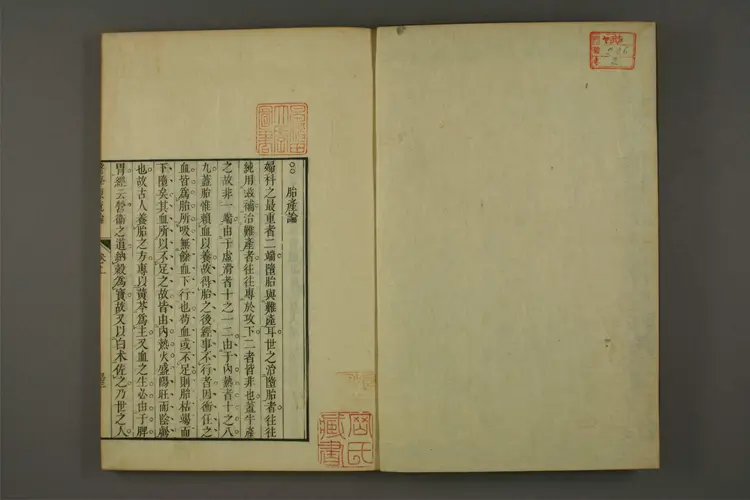 胎產論
婦科之最重者二端墮胎與難產耳世之治墮胎者往往
純用滋補治難產者往往專於攻下二者皆非也蓋半產
之故非一端由于虛滑者十之一二由于內熱者十之八
九蓋胎惟賴血以養故得胎之後經事不行者因衝任之
血皆爲胎所吸無餘血下行也苟血或不足則胎枯竭而
下墮矣其血所以不足之故皆由內熱火盛陽旺而陰虧
也故古人養胎之方專以黃芩爲主又血之生必由于脾
胃經云營衞之道納穀爲寶故又以白朮佐之乃世之人
卷下
早稻田大學圖書
岡氏藏書